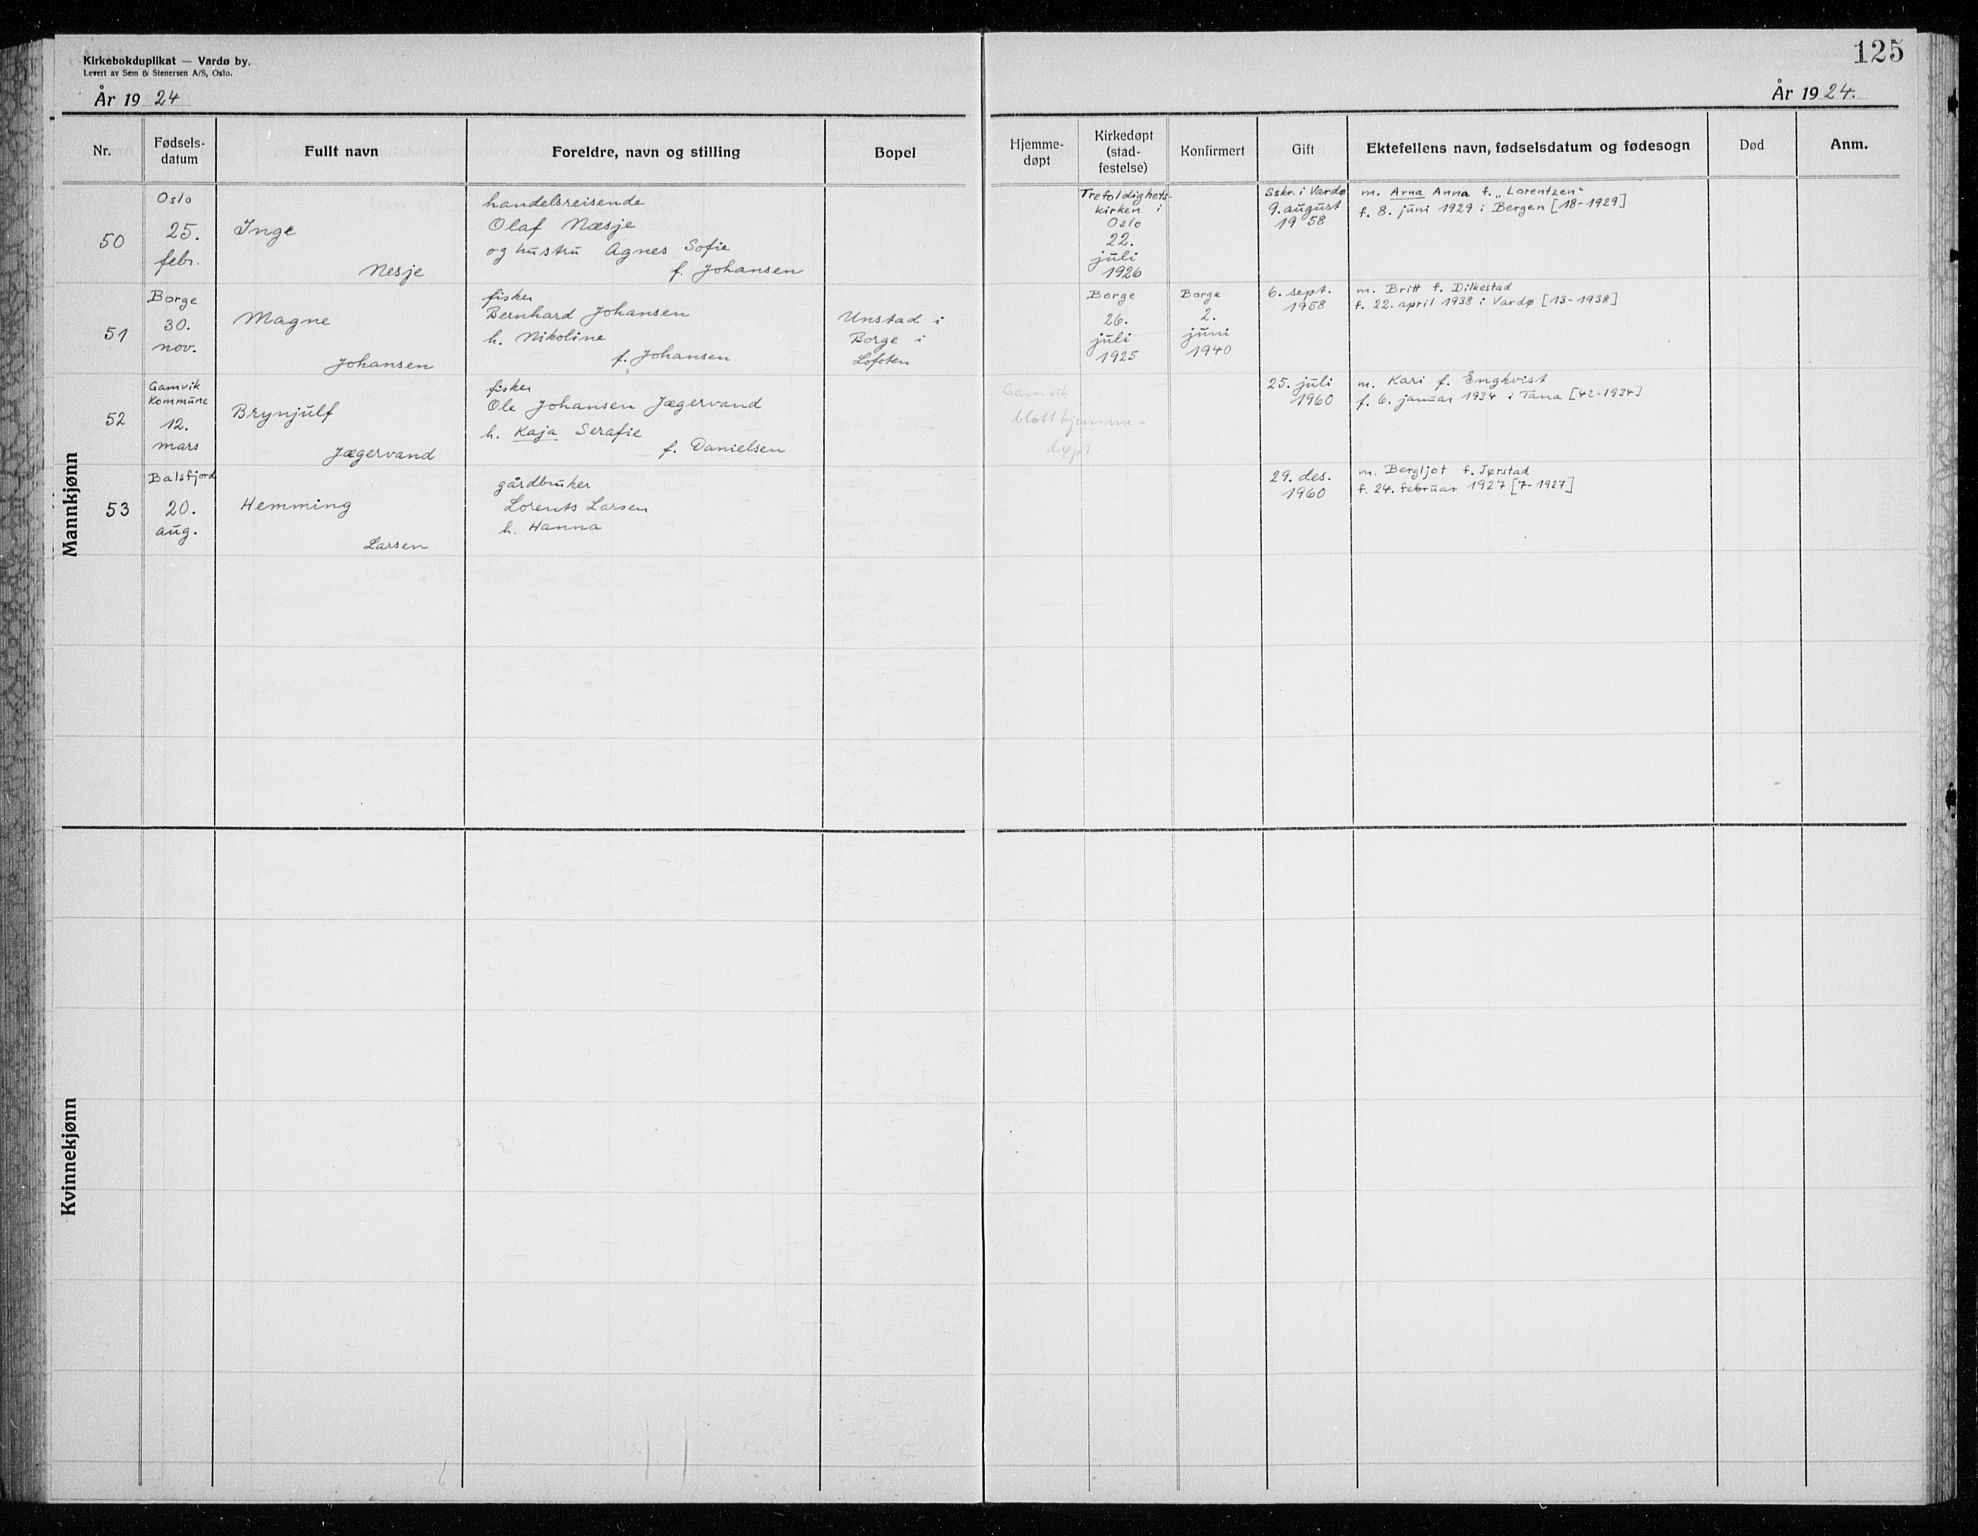 Kirkebokduplikat — Vardø by.
Levert av Sem & Stenersen A/S, Oslo.
År 1924
125
År 1924.
Nr.
Fødsels-
datum
Fullt navn
Foreldre, navn og stilling
Bopel
Hjemme-
døpt
Kirkedøpt
(stad-
festelse)
Konfirmert
Gift
Ektefellens navn, fødselsdatum og fødesogn
Død
Anm.
Mannkjønn
50
Oslo
25.
febr.
Inge
Nesje
handelsreisende
Olaf Næsje
og hustru Agnes Sofie
f. Johansen
Trefoldighets-
kirken i
Oslo
22.
juli
1926
Sskr. i Vardø
9. august
1958
m. Arna Anna f. „Lorentzen"
f. 8. juni 1929 i Bergen [18-1929]
51
Borge
30.
nov.
Magne
Johansen
fisker
Bernhard Johansen
h. Nikoline
f. Johansen
Unstad i
Borge i
Lofoten
Borge
26.
juli
1925
Borge
2.
juni
1940
6. sept.
1958
m. Britt f. Dilkestad
f. 22. april 1938 i Vardø [13-1938]
52
Gamvik
Kommune
12.
mars
Brynjulf
Jægervand
fisker
Ole Johansen Jægervand
h. Kaja Serafie
f. Danielsen
Gamvik
blott hjemme-
døpt
25. juli
1960
m. Kari f. Engkvist
f. 6. januar 1934 i Tana [42-1934]
53
Balsfjord
20.
aug.
Hemming
Larsen
gårdbruker
Lorents Larsen
h. Hanna
29. des.
1960
m. Bergljot f. Tørstad
f. 24. februar 1927 [7-1927]
Kvinnekjønn